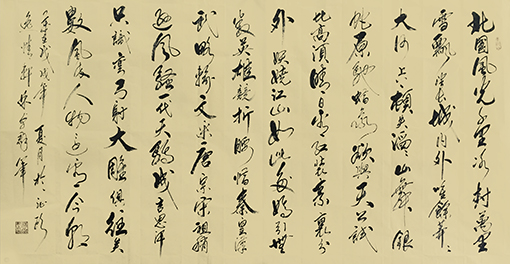 北國風光千里冰封萬里
雪飄望長城內外惟餘莽〻
大河上下頓失滔〻山舞銀
蛇原馳蠟象欲與天公試
比高須晴日看紅裝素裹分
外妖嬈江山如此多嬌引無
數英雄競折腰惜秦皇漢
武略輸文采唐宗宋祖稍
遜風騷一代天驕成吉思汗
只識彎弓射大雕俱往矣
數風流人物還看今朝
戊戌年夏月於